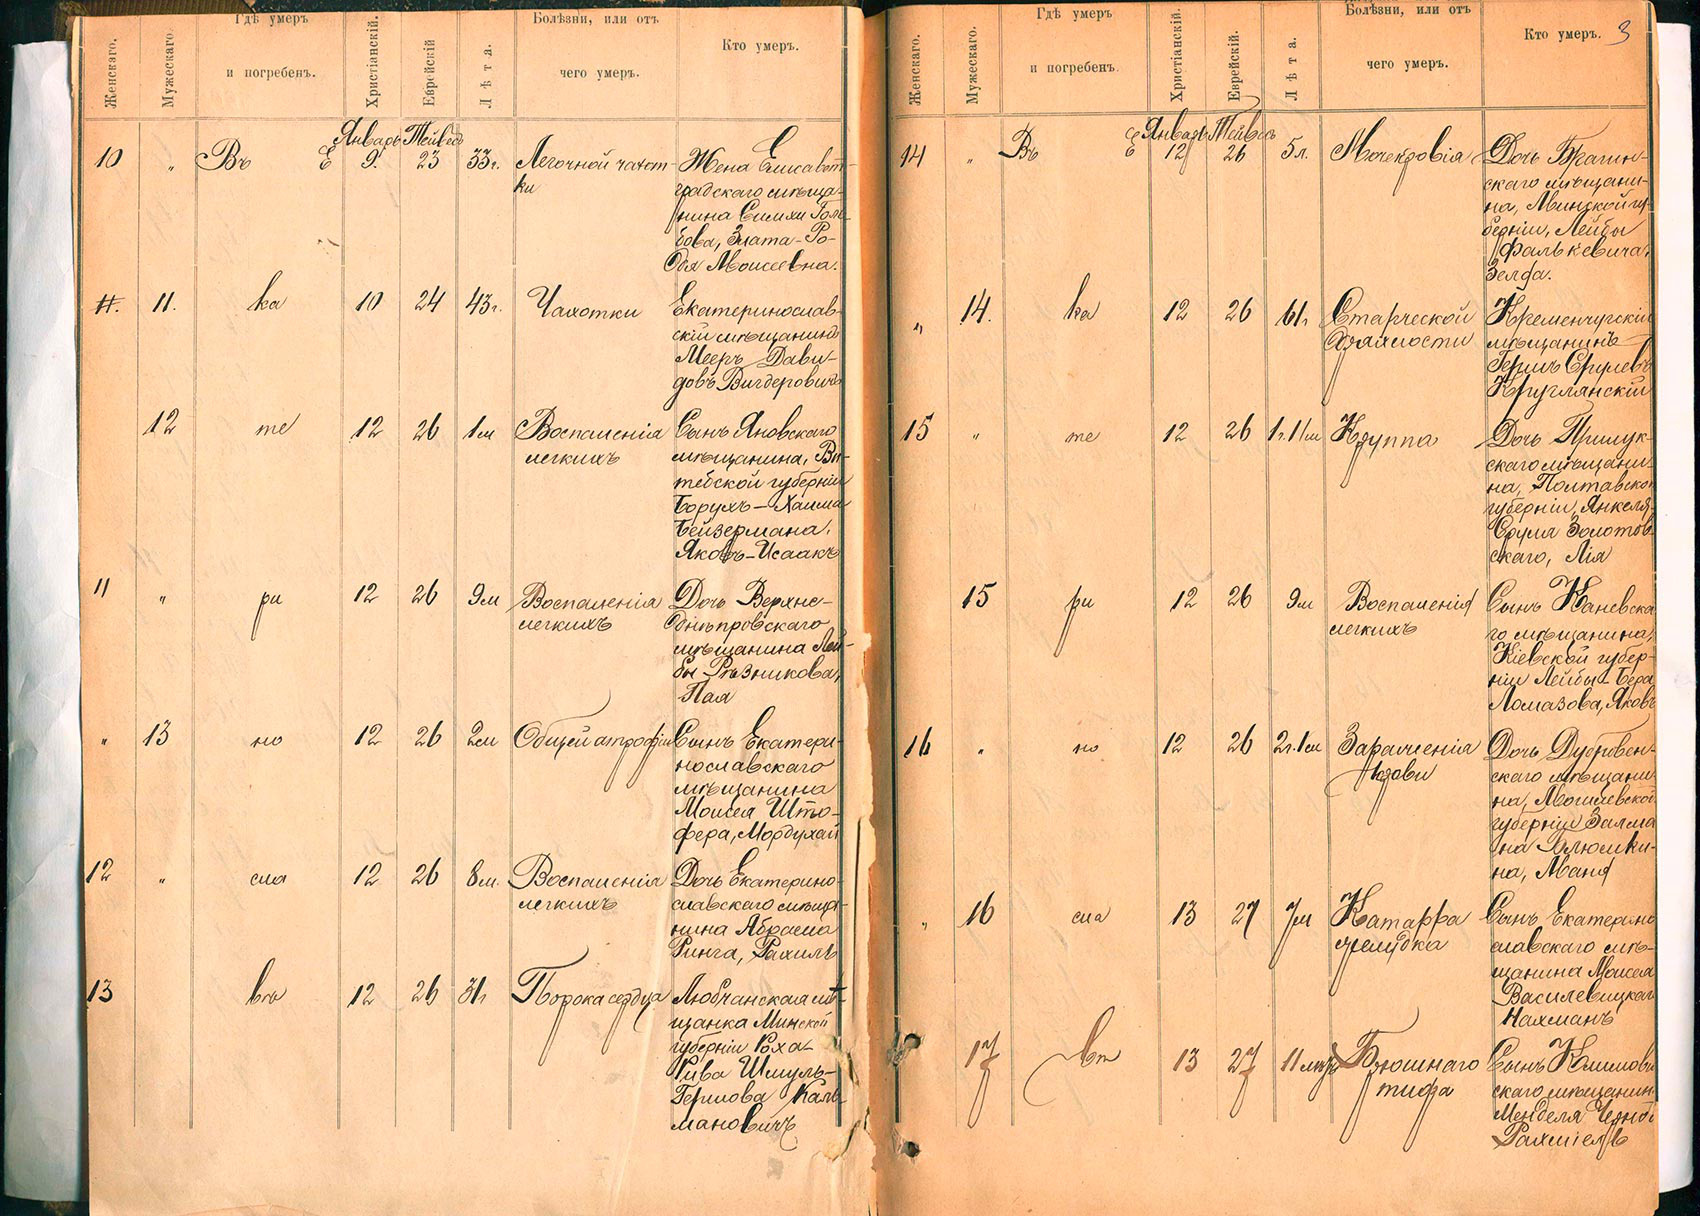 Женскаго.
Мужескаго.
Гдѣ умеръ
и погребенъ.
Христіанскій.
Еврейскій
Лѣта.
Болѣзни, или отъ
чего умеръ.
Кто умеръ.
10 „ Въ Е Январь 9. Тейвесъ 23 33 г. Легочной чахот-
ки
Жена Елисавет-
градскаго мѣща-
нина Симхи Голь-
бова, Злата-Ро-
дя Моисеевна.
11. 11. ка 10 24 43 г. Чахотки
Екатеринослав-
скій мѣщанинъ
Мееръ Дави-
довъ Вигдоровичъ
12 те 12 26 1 м Воспаленія
легкихъ
Сынъ Яновскаго
мѣщанина, Ви-
тебской губерніи
Борухъ-Хаима
Бейзермана,
Яковъ-Исаакъ
11 „ ри 12 26 9 м Воспаленія
легкихъ
Дочь Верхне-
днѣпровскаго
мѣщанина Лей-
бы Рѣзникова,
Пая
„ 13 но 12 26 2 м Общей атрофіи
Сынъ Екатери-
нославскаго
мѣщанина
Моисея Што-
фера, Мордухай
12 „ сла 12 26 8 м. Воспаленія
легкихъ
Дочь Екатерино-
славскаго мѣща-
нина Абрама
Ринга, Рахиль
13 въ 12 26 31 г Порока сердца
Любчанская мѣ-
щанка Минской
губерніи Роха-
Рива Шмуль-
Гершова Каль-
мановичъ
Женскаго.
Мужескаго.
Гдѣ умеръ
и погребенъ.
Христіанскій.
Еврейскій.
Лѣта.
Болѣзни, или отъ
чего умеръ.
Кто умеръ. 3
14 „ Въ Е Январь 12 Тейвесъ 26 5 л. Мочекровія
Дочь Брагин-
скаго мѣщани-
на, Минской гу-
берніи, Лейбы
Фалькевича,
Зелда.
„ 14. ка 12 26 61 г Старческой
дряхлости
Кременчугскій
мѣщанинъ
Гершъ Срулевъ
Круглянскій
15 „ те 12 26 1 г. 11 м Круппа
Дочь Прилук-
скаго мѣщани-
на, Полтавской
губерніи, Янкеля-
Сруля Золотов-
скаго, Лія
15 ри 12 26 9 м Воспаленія
легкихъ
Сынъ Каневска-
го мѣщанина,
Кіевской губер-
ніи Лейбы-Бера
Ломазова, Яковъ
16 „ но 12 26 2 г. 1 м Зараженія
крови
Дочь Дубровен-
скаго мѣщани-
на, Могилевской
губерніи Залма-
на
на,
„ 16 сла 13 27 7 м Катарра
желудка
Сынъ Екатерино
славскаго мѣ-
щанина Моисея
Василевицкаго
Нахманъ
17 въ 13 27 11 мѣс Брюшнаго
тифа
Сынъ Климови
скаго мѣщанин
Менделя
Рахміель